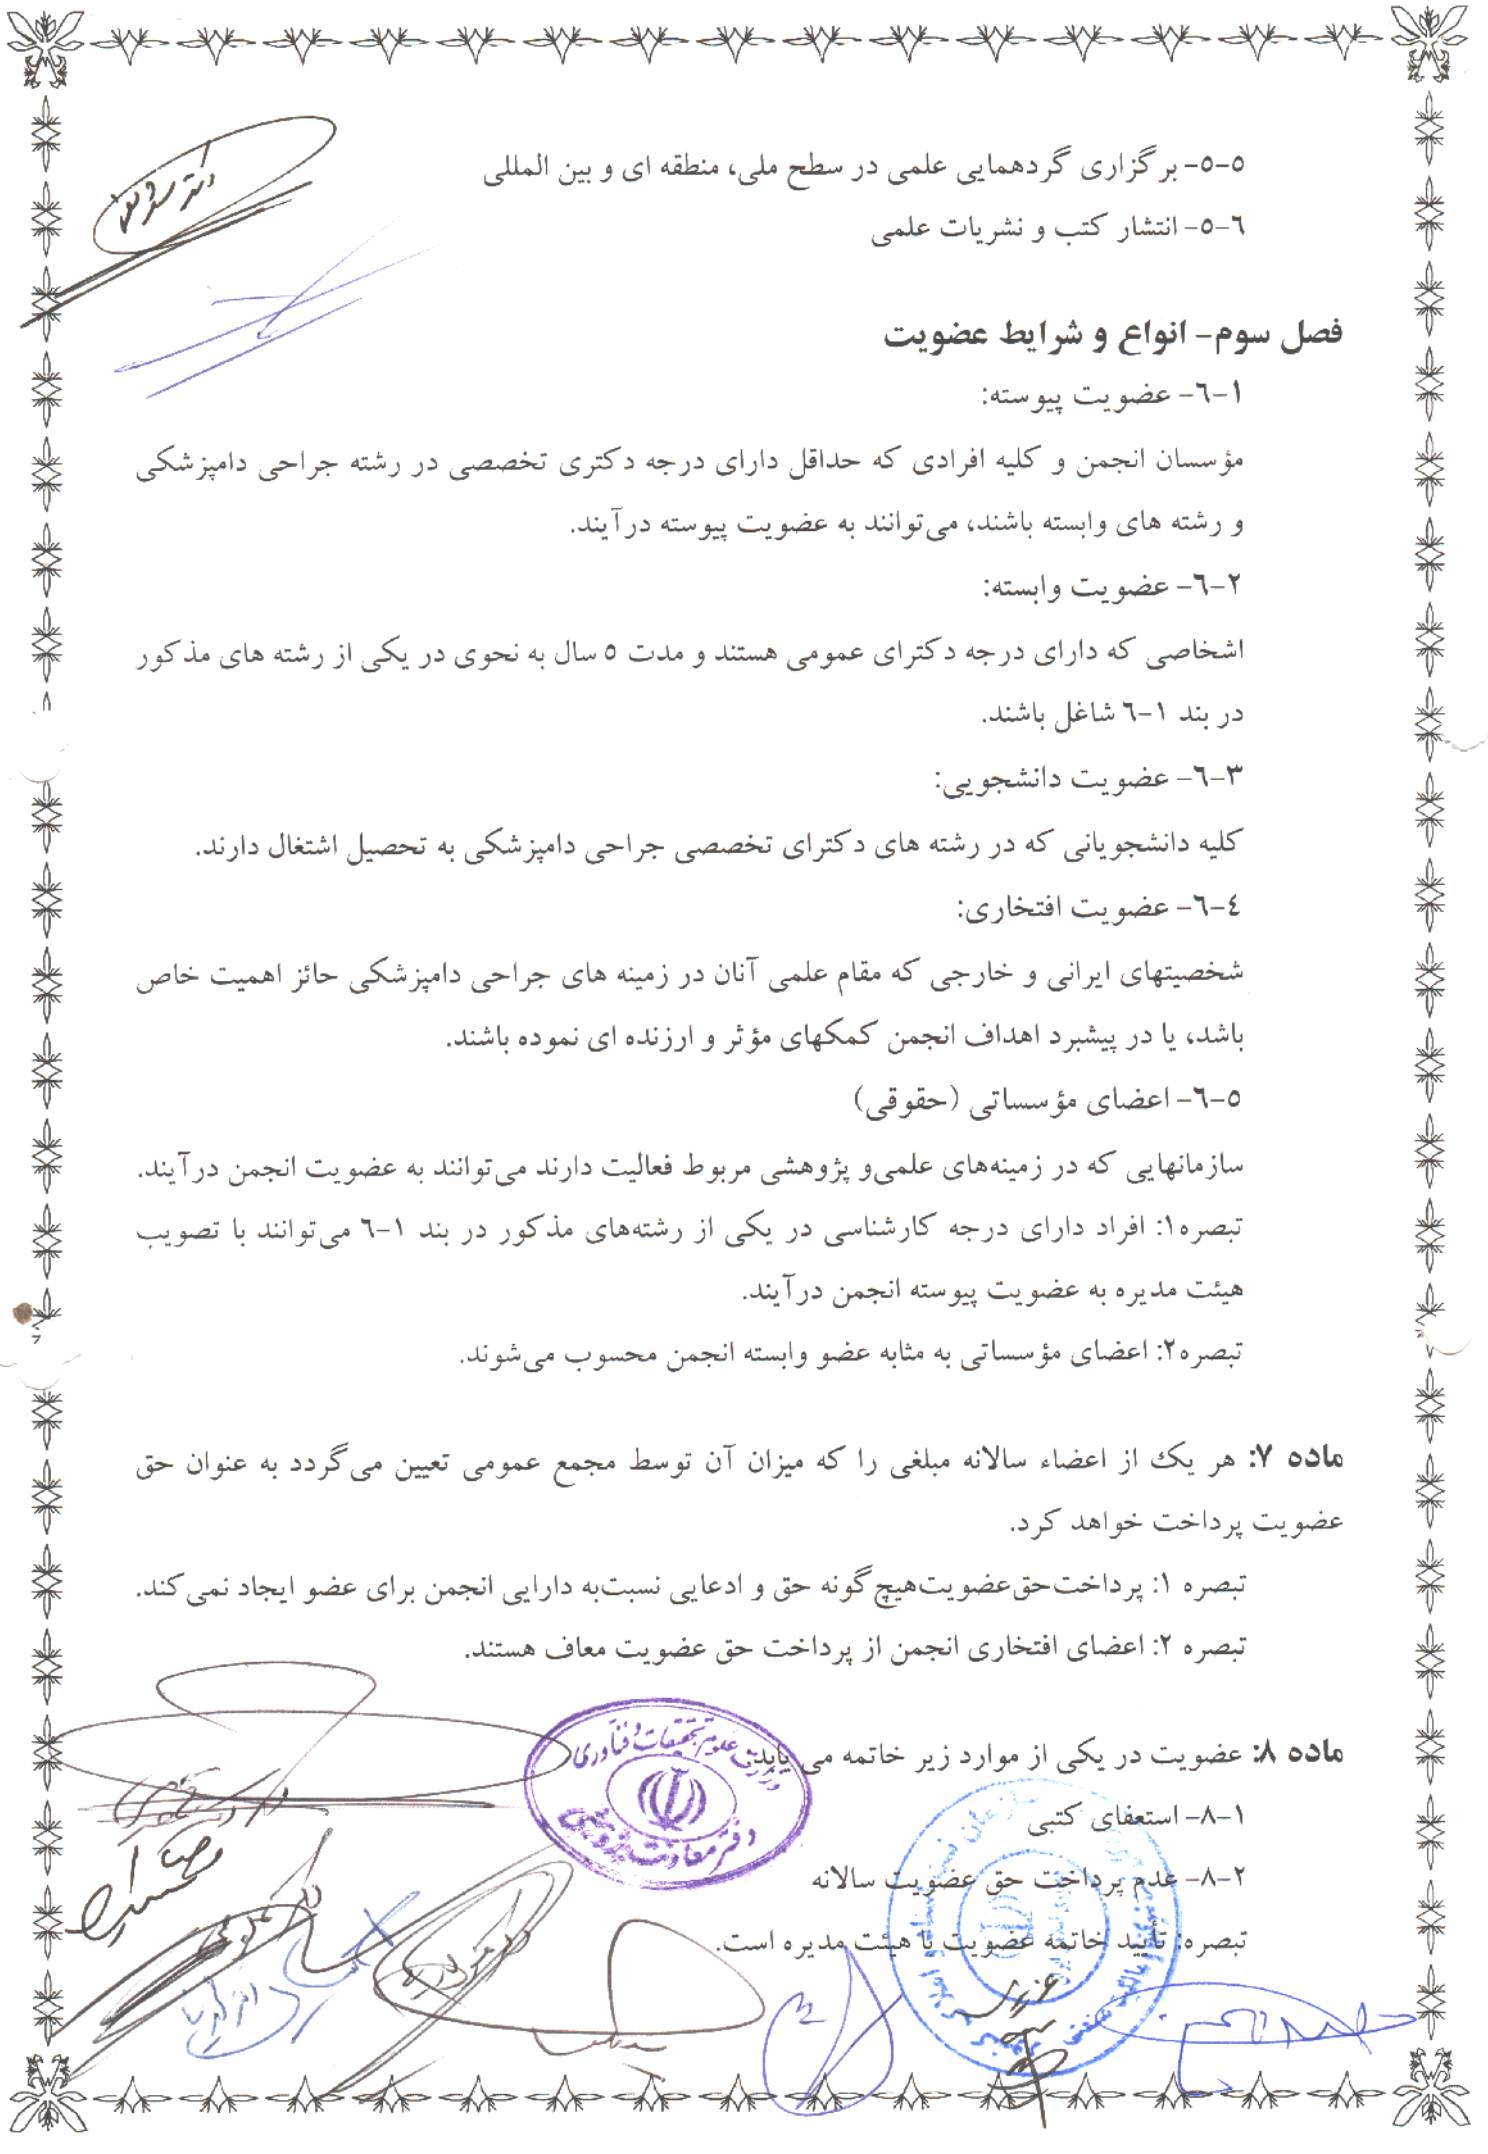 ۵-۵- برگزاری گردهمایی علمی در سطح ملی، منطقه ای و بین المللی
۶-۵- انتشار کتب و نشریات علمی
فصل سوم- انواع و شرایط عضویت
۱-۶- عضویت پیوسته:
مؤسسان انجمن و کلیه افرادی که حداقل دارای درجه دکتری تخصصی در رشته جراحی دامپزشکی
و رشته های وابسته باشند، می‌توانند به عضویت پیوسته درآیند.
۲-۶- عضویت وابسته:
اشخاصی که دارای درجه دکترای عمومی هستند و مدت ۵ سال به نحوی در یکی از رشته های مذکور
در بند ۱-۶ شاغل باشند.
۳-۶- عضویت دانشجویی:
کلیه دانشجویانی که در رشته های دکترای تخصصی جراحی دامپزشکی به تحصیل اشتغال دارند.
۴-۶- عضویت افتخاری:
شخصیتهای ایرانی و خارجی که مقام علمی آنان در زمینه های جراحی دامپزشکی حائز اهمیت خاص
باشد، یا در پیشبرد اهداف انجمن کمکهای مؤثر و ارزنده ای نموده باشند.
۵-۶- اعضای مؤسساتی (حقوقی)
سازمانهایی که در زمینه‌های علمی‌و پژوهشی مربوط فعالیت دارند می‌توانند به عضویت انجمن درآیند.
تبصره۱: افراد دارای درجه کارشناسی در یکی از رشته‌های مذکور در بند ۱-۶ می‌توانند با تصویب
هیئت مدیره به عضویت پیوسته انجمن درآیند.
تبصره۲: اعضای مؤسساتی به مثابه عضو وابسته انجمن محسوب می‌شوند.
ماده ۷: هر یک از اعضاء سالانه مبلغی را که میزان آن توسط مجمع عمومی تعیین می‌گردد به عنوان حق
عضویت پرداخت خواهد کرد.
تبصره ۱: پرداخت‌حق‌عضویت‌هیچ‌گونه حق و ادعایی نسبت‌به دارایی انجمن برای عضو ایجاد نمی‌کند.
تبصره ۲: اعضای افتخاری انجمن از پرداخت حق عضویت معاف هستند.
ماده ۸: عضویت در یکی از موارد زیر خاتمه می یابد:
۱-۸- استعفای کتبی
۲-۸- عدم پرداخت حق عضویت سالانه
تبصره: تأیید خاتمه عضویت با هیئت مدیره است.
وزارت علوم تحقیقات و فنآوری
دفتر معاونت پژوهشی